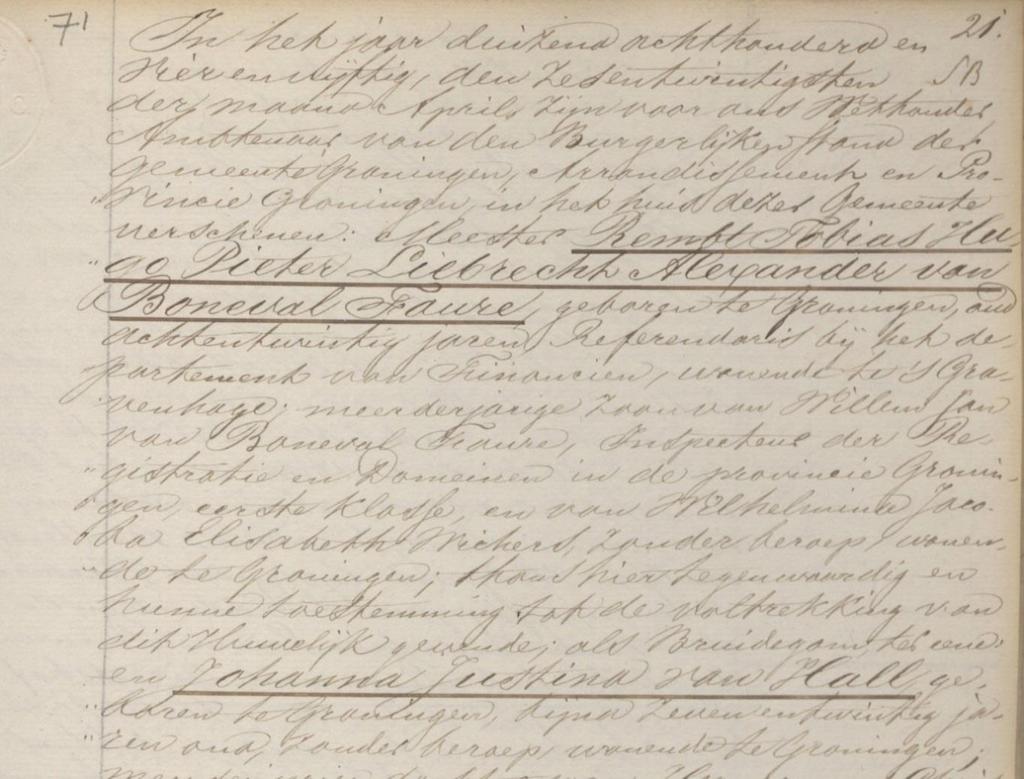 71
21.
SB
In het jaar duizend achthonderd en
vier en vijftig, den zesentwintigsten
der maand April, zijn voor ons Wethouder,
Ambtenaar van den Burgerlijken Stand der
gemeente Groningen, Arrondissement en Pro-
"vincie Groningen, in het huis dezer Gemeente
verschenen: Meester Rembt Tobias Hu
"go Pieter Liebrecht Alexander van
Boneval Faure, geboren te Groningen, oud
achtentwintig jaren, Referendaris bij het de-
partement van Financien, wonende te 's Gra-
venhage; meerderjarige zoon van Willem Jan
van Boneval Faure, Inspecteur der Re-
"gistratie en Domeinen in de provincie Gronin-
"gen, eerste klasse, en van Wilhelmina Jaco-
"ba Elisabeth Wichers, zonder beroep, wonen-
"de te Groningen; thans hier tegenwoordig en
hunne toestemming tot de voltrekking van
dit Huwelijk gevende; als Bruidegom ter eene
en Johanna Justina van Hall, ge-
"boren te Groningen, bijna zevenentwintig ja-
"ren oud, zonder beroep, wonende te Groningen;